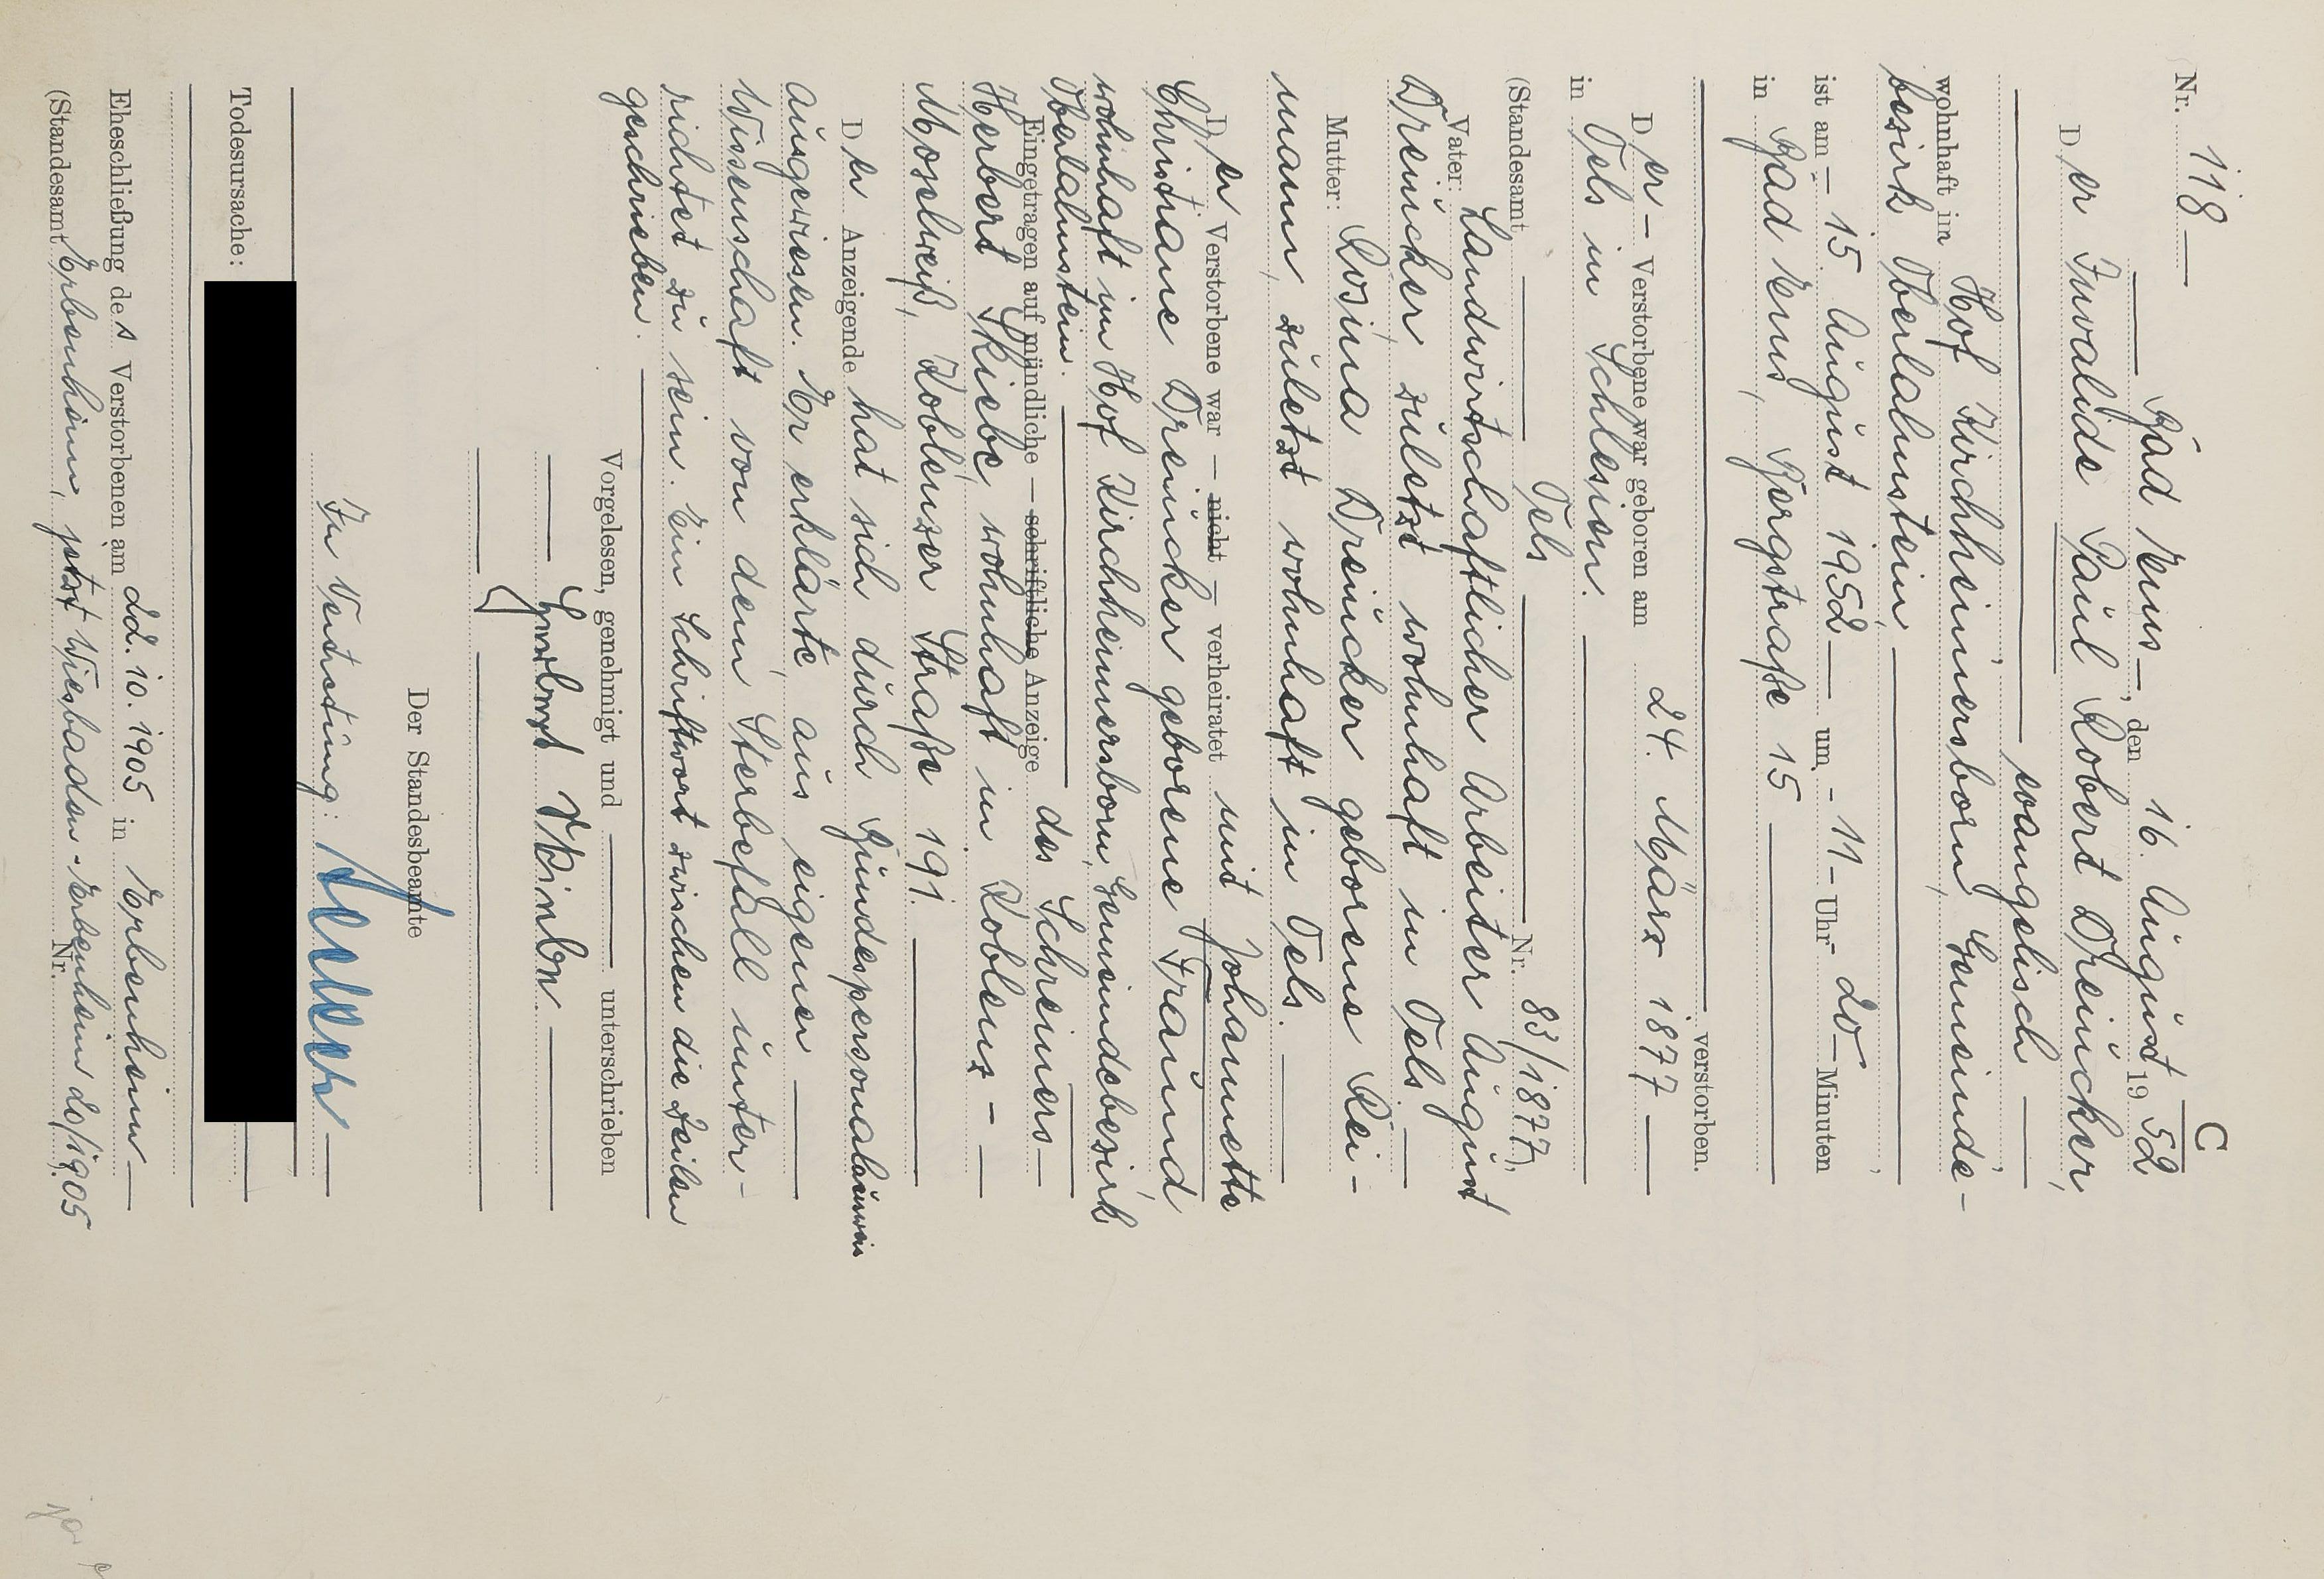 C
Nr. 118
Bad Ems, den 16. August 1952
Der Invalide Paul Robert Dreucker,
evangelisch
wohnhaft im Hof Kirchheimersborn, Gemeinde-
bezirk Oberlahnstein,
ist am - 15. August 1952 um - 11 - Uhr 20 Minuten
in Bad Ems, Bergstraße 15
verstorben.
Der - Verstorbene war geboren am 24. März 1877
in Oels in Schlesien.
(Standesamt Oels Nr. 83/1877).
Vater: Landwirtschaftlicher Arbeiter August
Dreucker zuletzt wohnhaft in Oels.
Mutter: Rosina Dreucker geborene Rei-
mann, zuletzt wohnhaft in Oels.
Der Verstorbene war — nicht — verheiratet mit Johannette
Christiane Dreucker geborene Fraund
wohnhaft im Hof Kirchheimersborn, Gemeindebezirk
Oberlahnstein.
Eingetragen auf mündliche — schriftliche Anzeige des Schreiners
Herbert Skiebe, wohnhaft in Koblenz -
Moselweiß, Koblenzer Straße 191.
Der Anzeigende hat sich durch Bundespersonalausweis
ausgewiesen. Er erklärte, aus eigener
Wissenschaft von dem Sterbefall unter-
richtet zu sein. Ein Schriftwort zwischen die Zeilen
geschrieben.
Vorgelesen, genehmigt und unterschrieben
Herbert Skiebe
Der Standesbeamte
In Vertretung:
Todesursache:
Eheschließung des Verstorbenen am 22.10.1905 in Erbenheim
(Standesamt Erbenheim, jetzt Wiesbaden-Erbenheim Nr. 20/1905